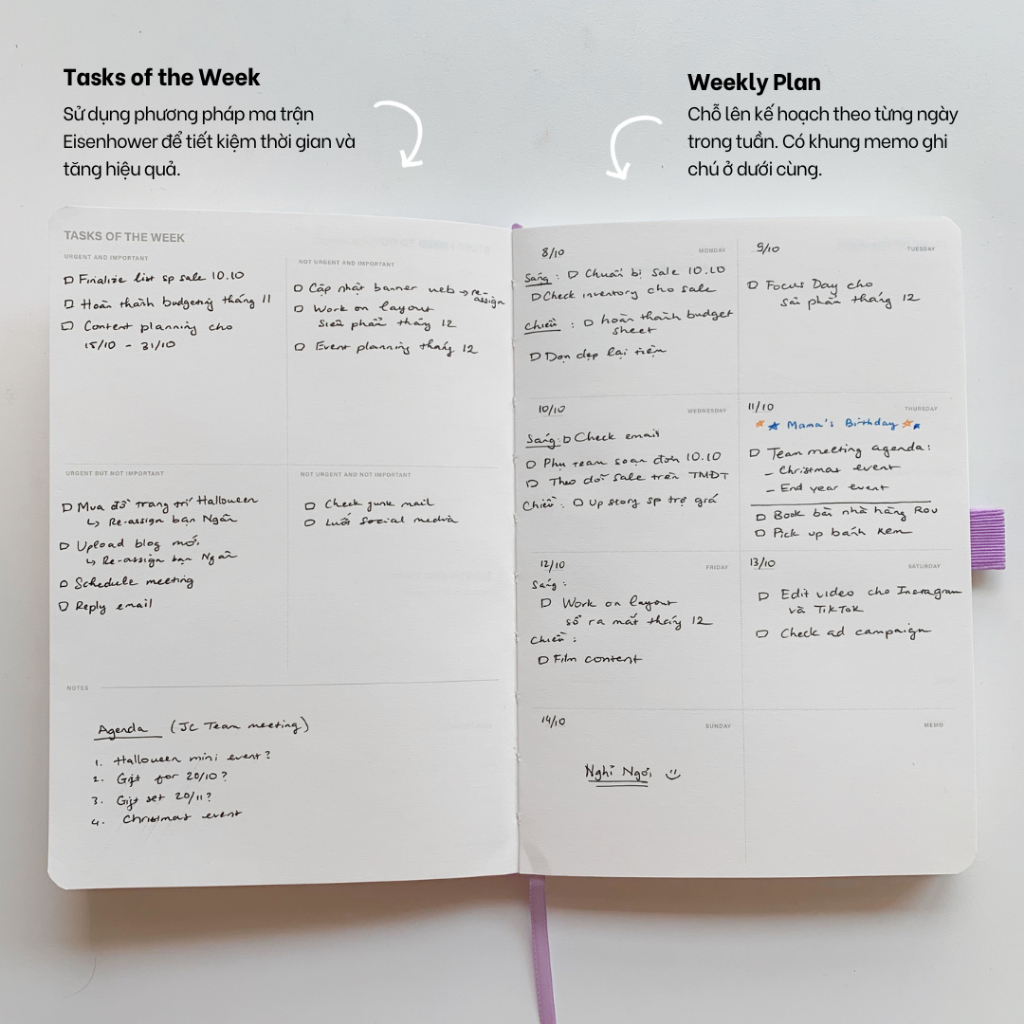 Tasks of the Week
Sử dụng phương pháp ma trận
Eisenhower để tiết kiệm thời gian và
tăng hiệu quả.
Weekly Plan
Chỗ lên kế hoạch theo từng ngày
trong tuần. Có khung memo ghi
chú ở dưới cùng.
TASKS OF THE WEEK
URGENT AND IMPORTANT
Finalize list sp sale 10.10
Hoàn thành budgeting tháng 11
Content planning cho
15/10 - 31/10
NOT URGENT AND IMPORTANT
Cập nhật banner web → re-
assign
Work on layout
siêu phẩm tháng 12
Event planning tháng 12
URGENT BUT NOT IMPORTANT
Mua đồ trang trí Halloween
↳ Re-assign bạn Ngân
Upload blog mới
↳ Re-assign bạn Ngân
Schedule meeting
Reply email
NOT URGENT AND NOT IMPORTANT
Check junk mail
Lướt social media
NOTES
Agenda (JC Team meeting)
1. Halloween mini event?
2. Gift for 20/10?
3. Gift set 20/11?
4. Christmas event
8/10
MONDAY
Sáng: Chuẩn bị sale 10.10
Check inventory cho sale
Chiều: hoàn thành budget
sheet
Dọn dẹp lại tiệm
9/10
TUESDAY
Focus Day cho
sản phẩm tháng 12
10/10
WEDNESDAY
Sáng: Check email
Phụ team soạn đơn 10.10
Theo dõi sale trên TMĐT
Chiều: Up story sp trợ giá
11/10
THURSDAY
Mama's Birthday
Team meeting agenda:
- Christmas event
- End year event
Book bàn nhà hàng
Pick up bánh kem
12/10
FRIDAY
Sáng:
Work on layout
sổ ra mắt tháng 12
Chiều:
Film content
13/10
SATURDAY
Edit video cho Instagram
và TikTok
Check ad campaign
14/10
SUNDAY
Nghỉ Ngơi
MEMO